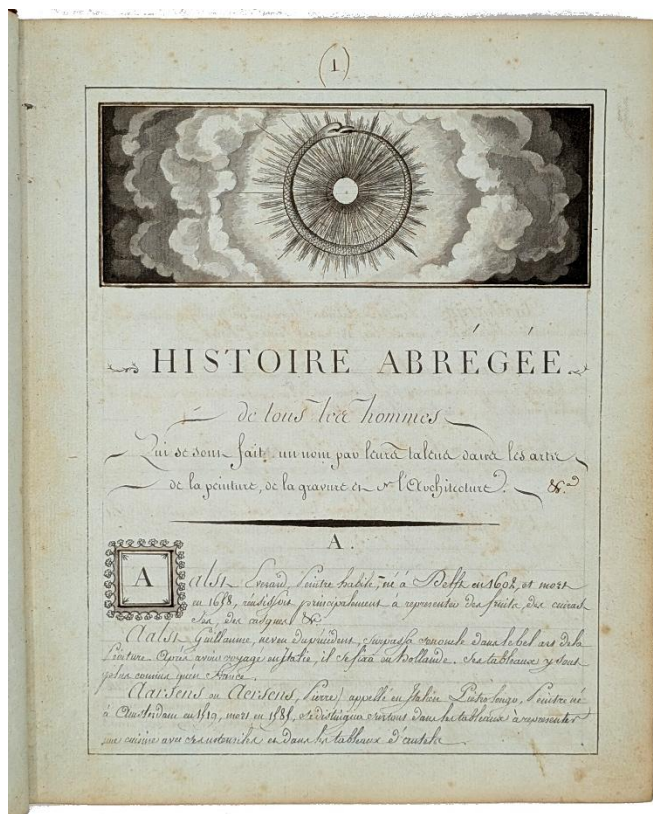 (1)
HISTOIRE ABRÉGÉE
de tous les hommes
Qui se sont fait un nom par leurs talens dans les arts
de la peinture, de la gravure et de l'Architecture. &.a
A.
Aalst Evrard, Peintre habile, né à Delft en 1602, et mort
en 1658, réussissoit principalement à representer des fruits, des cuiras-
ses, des casques &c.
Aalst Guillaume, neveu du précédent, surpassa son oncle dans le bel art de la
Peinture. Après avoir voyagé en Italie, il se fixa en Hollande. Ses tableaux y sont
plus connus qu'en France.
Aarsens ou Aersens, Pierre) appellé en Italien Pietro longo, Peintre né
à Amsterdam en 1519, mort en 1585, se distingua surtout dans les tableaux à representer
une cuisine avec ses ustensiles et dans les tableaux d'autels